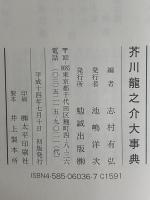 芥川龍之介大事典
編者 志村有弘
発行者 池嶋洋次
発行所 勉誠出版㈱
東京都千代田区麹町四-八-二六
電話 〇三(五二一五)九〇二一(代)
平成十四年七月十日 初版発行
印刷 ㈱太平印刷社
製本 井上製本所
ISBN4-585-06036-7 C1591